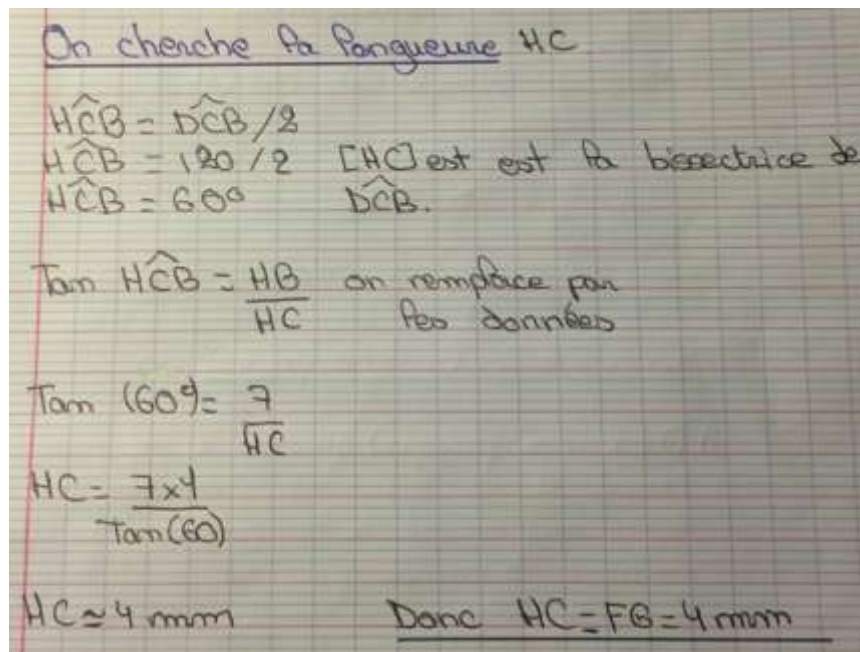 On cherche la longueure HC
HĈB = DĈB/2
HĈB = 120/2 [HC] est est la bissectrice de
HĈB = 60° DĈB.
Tan HĈB = HB/HC on remplace par
les données
Tan (60°) = 7/HC
HC = 7x1/Tan(60)
HC ≃ 4 mm Donc HC = FG = 4 mm